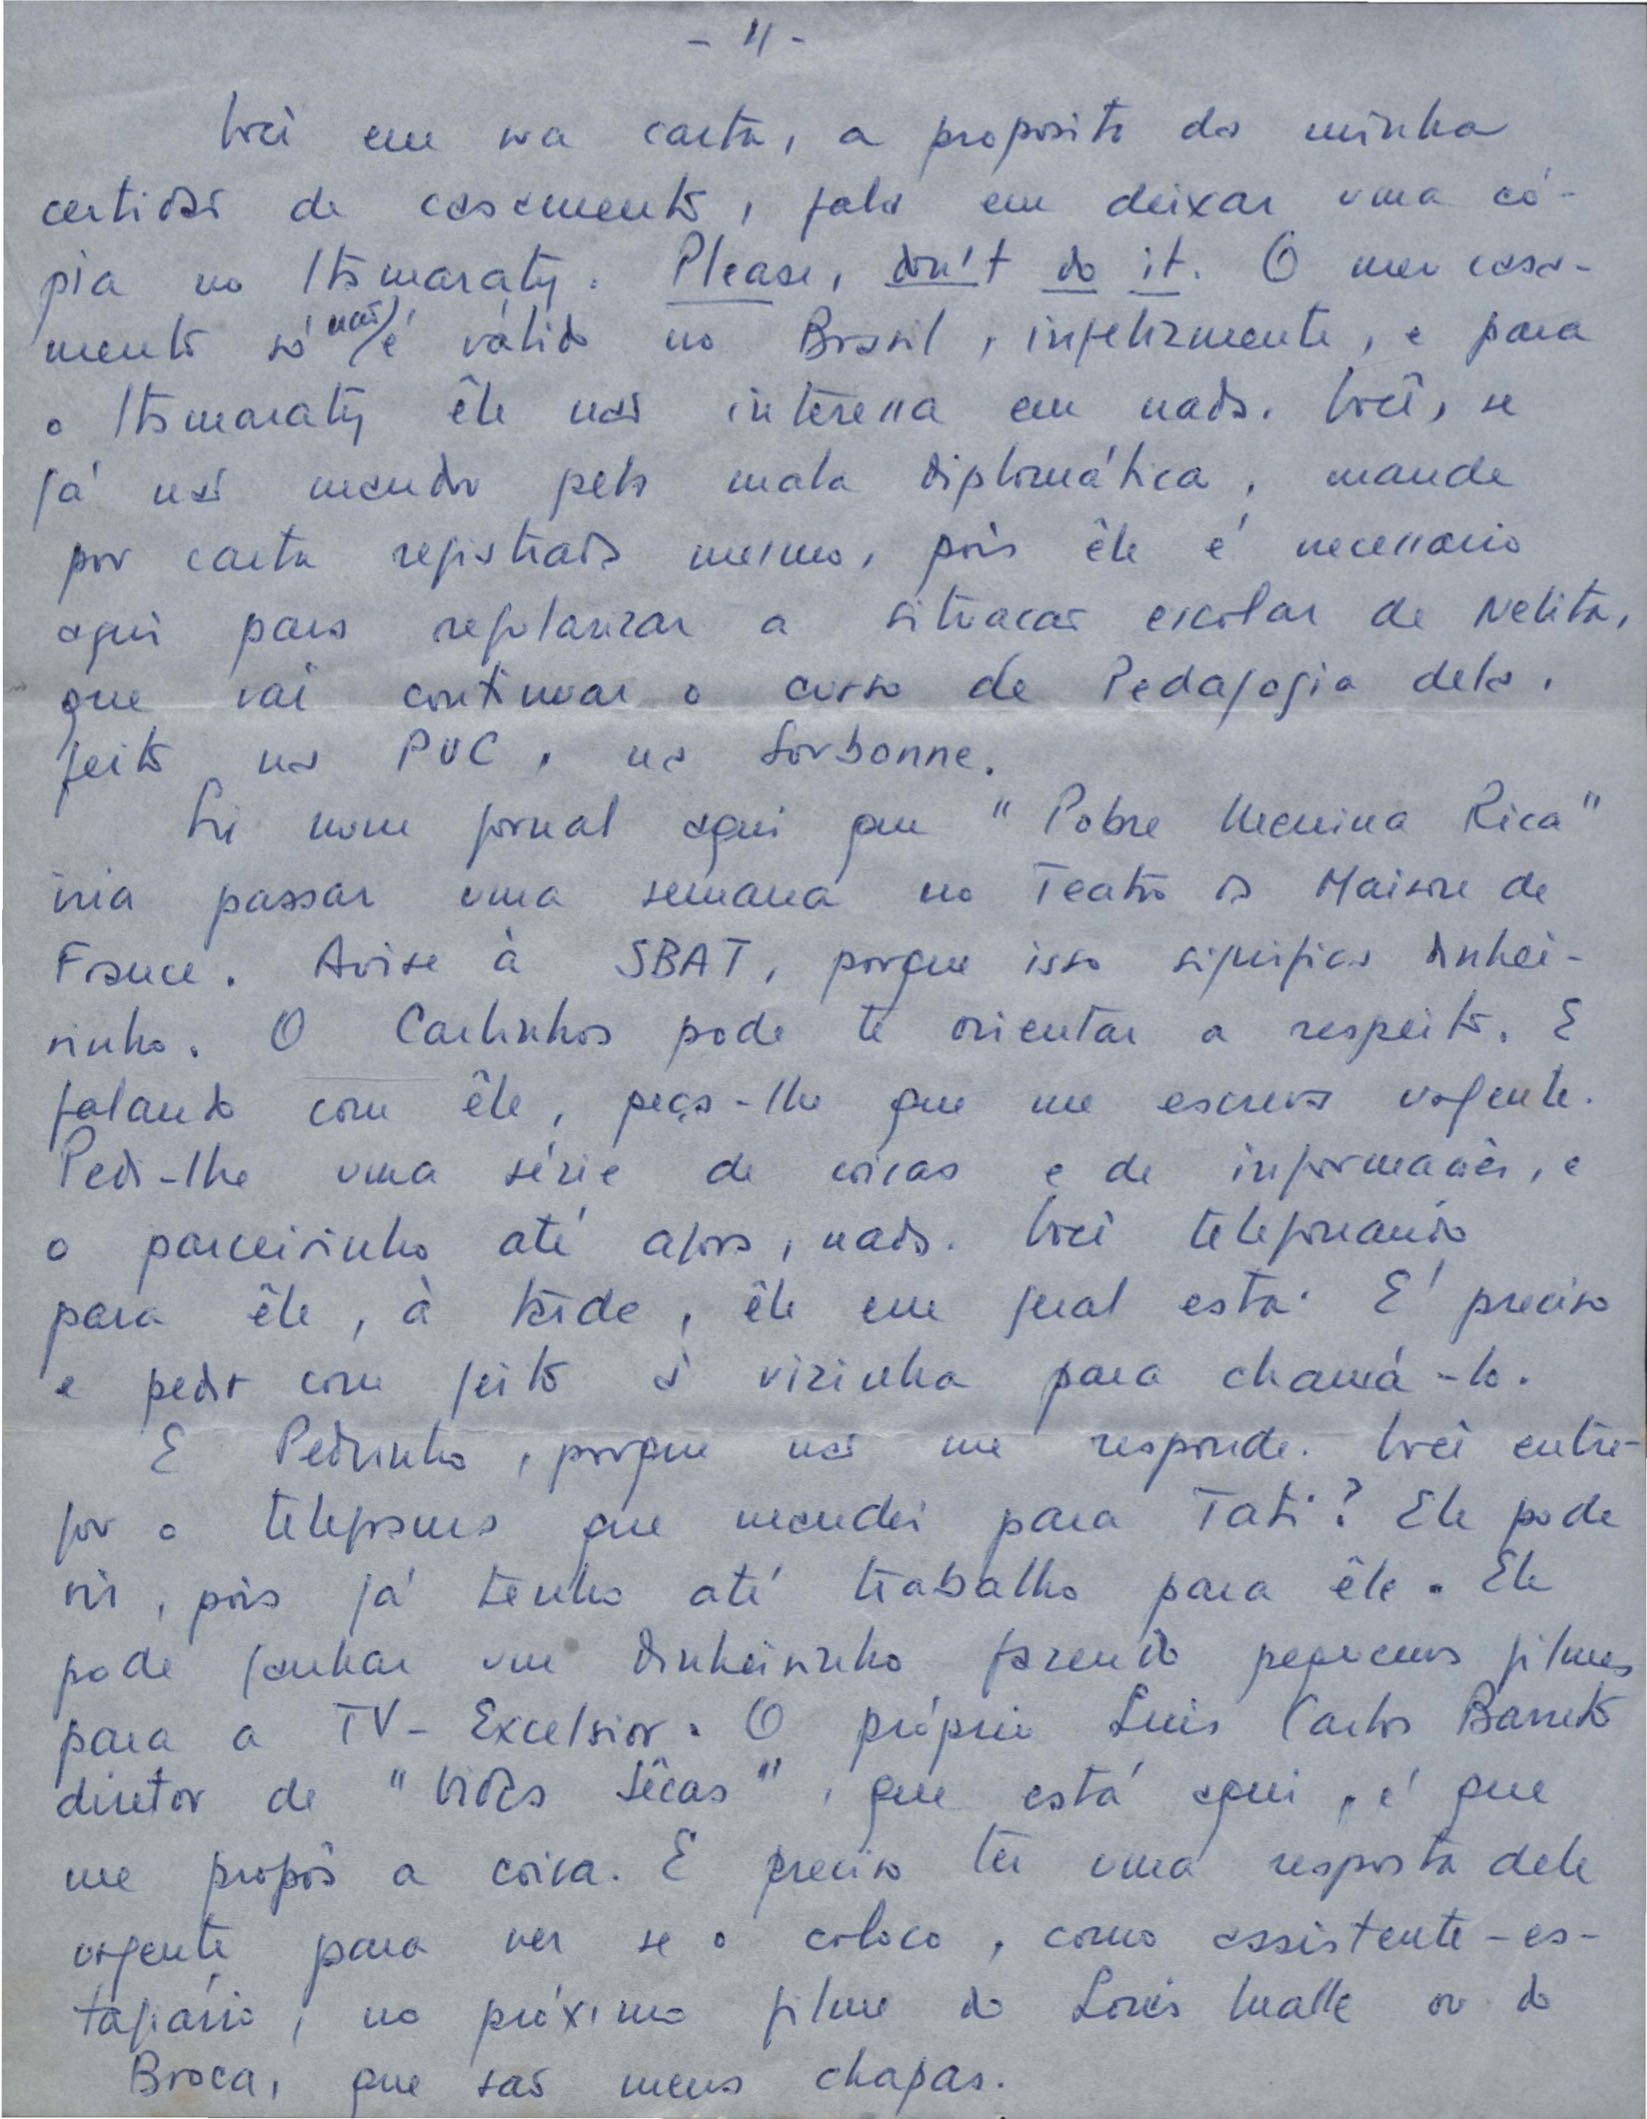 - 11 -
Você em sua carta, a proposito da minha
certidão de casamento, fala em deixar uma có-
pia no Itamaraty. Please, don't do it. O meu casa-
mento só não é válido no Brasil, infelizmente, e para
o Itamaraty êle não interessa em nada. Você, se
já não mandou pela mala diplomática, mande
por carta registrada mesmo, pois êle é necessario
aqui para regularizar a situacão escolar de Nelita,
que vai continuar o curso de Pedagogia dela,
feito na PUC, na Sorbonne.
Li num jornal aqui que "Pobre Menina Rica"
iria passar uma semana no Teatro da Maison de
France. Avise à SBAT, porque isso significa dinhei-
rinho. O Carlinhos pode te orientar a respeito. E
falando com êle, peça-lhe que me escreva urgente.
Pedi-lhe uma série de coisas e de informações, e
o parceirinho até agora, nada. Você telefonando
para êle, à tarde, êle em geral está. E' preciso
e pedir com jeito à vizinha para chamá-lo.
E Pedrinho, porque não me responde. Você entre-
gou o telegrama que mandei para Tati? Ele pode
vir, pois já tenho até trabalho para êle. Ele
pode ganhar um dinheirinho fazendo pequenos filmes
para a TV-Excelsior. O próprio Luis Carlos Barreto
diretor de "Vidas Sêcas", que está aqui, é que
me propôs a coisa. E preciso ter uma resposta dele
urgente para ver se o coloco, como assistente-es-
tagiário, no próximo filme do Louis Malle ou do
Broca, que são meus chapas.